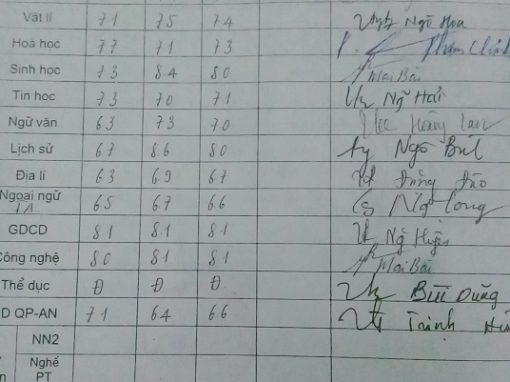 Vật lí 71 75 74 Ngô Hoa
Hoá học 77 71 73
Sinh học 73 84 80 Mai Bài
Tin học 73 70 71 Ng Hải
Ngữ văn 63 73 70 Hoàng Lan
Lịch sử 67 86 80 Ngô
Địa lí 63 69 67 Đào
Ngoại ngữ 65 67 66 Ng Long
GDCD 81 81 81 Ng Huyền
Công nghệ 80 81 81 Mai Bài
Thể dục Đ Đ Đ Bùi Dũng
D QP-AN 71 64 66 Trịnh
NN2
Nghề
PT